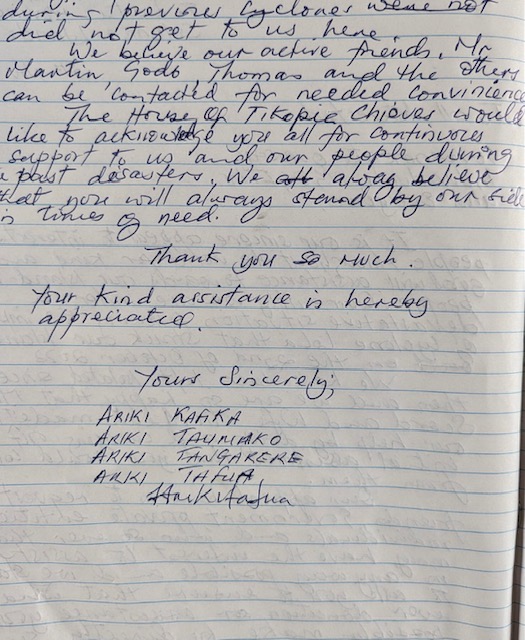 during previous cyclones were not
did not get to us here.
We believe our active friends, Mr
Martin, Godo, Thomas and the others
can be contacted for needed convinience
The House of Tikopia Chieves would
like to acknowledge you all for continuous
support to us and our people during
past desasters. We alway believe
that you will always stand by our side
in times of need.
Thank you so much.
Your kind assistance is hereby
appreciated.
Yours Sincerely,
ARIKI KAFIKA
ARIKI TAUMAKO
ARIKI TANGARERE
ARIKI TAFUA